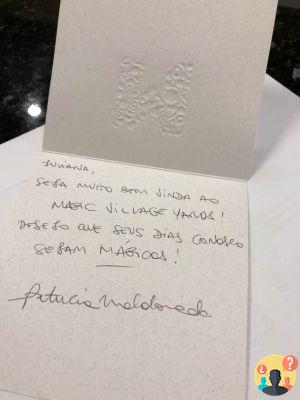 JULIANA,
SEJA MUITO BEM VINDA AO
MAGIC VILLAGE YARDS!
DESEJO QUE SEUS DIAS CONOSCO
SEJAM MÁGICOS!
Patricia Maldonado